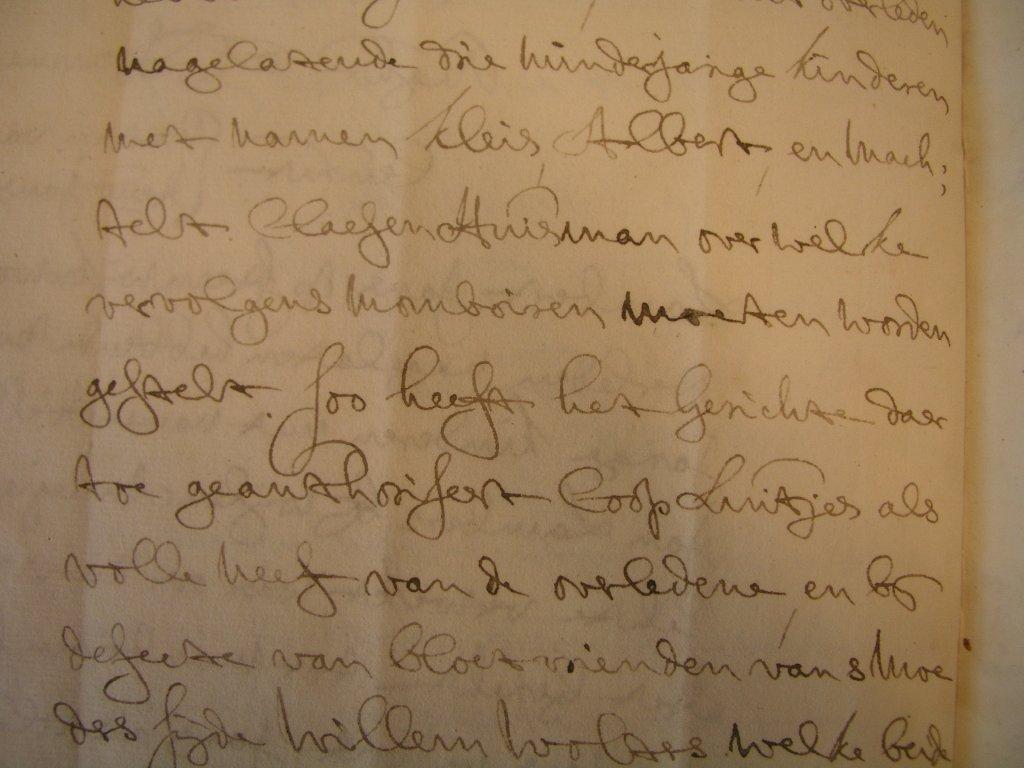 overleden
nagelatende drie minderjarige kinderen
met namen Kleis, Albert, en Mach,
telt Claesen Huisman over welke
vervolgens Momboiren moeten worden
gestelt. soo heeft het Gerichte daer
toe geauthoriseert Coop Luitjes als
volle Neef van de overledene en by
defecte van bloet vrienden van s Moe
ders sijde Willem Wolters welke beide